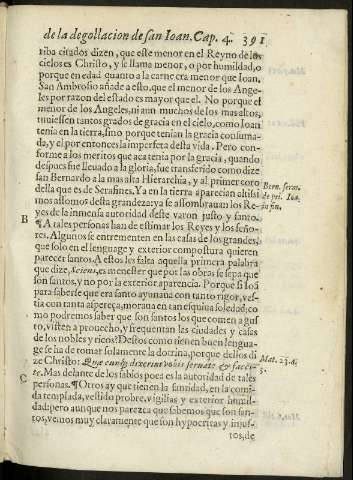 de la degollacion de san Ioan. Cap. 4. 391
riba citados dizen, que este menor en el Reyno de los
cielos es Christo, y se llama menor, o por humildad, o
porque en edad quanto a la carne era menor que Ioan.
San Ambrosio añade a esto, que el menor de los Ange-
les por razon del estado es mayor que el. No porque el
menor de los Angeles, ni aun muchos de los mas altos,
tuuiessen tantos grados de gracia en el cielo, como Ioan
tenia en la tierra, sino porque tenian la gracia consuma-
da, y el por entonces la imperfeta desta vida. Pero con-
forme a los meritos que aca tenia por la gracia, quando
despues fue lleuado a la gloria, fue transferido como dize
san Bernardo a la mas alta Hierarchia, y al primer coro
della que es de Serafines. Ya en la tierra parecian altissi
Bern. serm.
de pri. Ioa.
mos assomos desta grandeza: y a se assombrauan los Re-
yes de la inmensa autoridad deste varon justo y santo.
B
¶ A tales personas han de estimar los Reyes y los seño-
res. Algunos se entremeten en las casas de los grandes,
que solo en el lenguage y exterior compostura quieren
parecer santos. A estos les falta aquella primera palabra
que dize, Sciens, es menester que por las obras se sepa que
son santos, y no por la exterior aparencia. Porque si Ioã
para saberse que era santo ayunaua con tanto rigor, ves-
tia con tanta aspereça, moraua en tan esquiua soledad; co
mo podremos saber que son santos los que comen a gus
to, visten a prouecho, y frequentan las ciudades y casas
de los nobles y ricos? Destos como tienen buen lengua-
ge se ha de tomar solamente la dotrina, porque dellos di
Mat. 23. 4.
ze Christo: Quæcunque dixerint vobis seruate & faci-
te. Mas delante de los sabios poca es la autoridad de tales
C
personas. ¶ Otros ay que tienen la santidad, en la comi-
da templada, vestido probre, vigilias y exterior humil-
dad: pero aunque nos parezca que sabemos que son san-
tos, vemos muy claramente que son hypocritas y injus-
tos, de